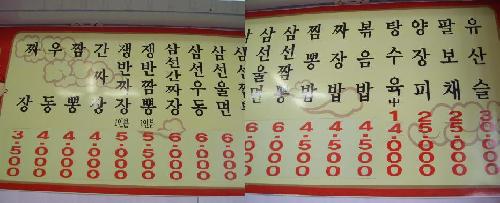 짜장 3.500
우동 4.000
짬뽕 4.000
간짜장 4.500
쟁반짜장 1인분 5.000
쟁반짬뽕 1인분 5.500
삼선간짜장 6.000
삼선우동 6.000
삼선울면 6.000
삼선울면 6.000
삼선짬뽕 6.000
짬뽕밥
짜장밥 4.500
볶음밥 4.500
탕수육 中 14.000
양장피 25.000
팔보채 25.000
유산슬 30.000